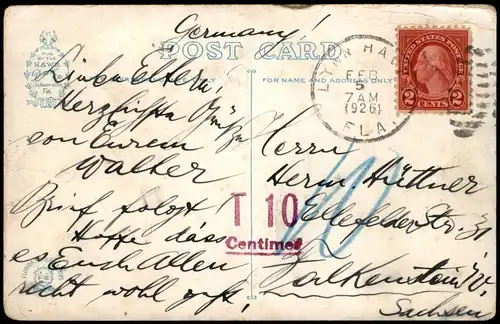 Germany!
PUB BY THE
H.& W.B.
POST CARD
FOR NAME AND ADDRESS ONLY
Lieben Eltern,
Herzlichste Grüße
von Eurem
Walter
Brief folgt!
Hoffe dass
es Euch Allen
recht wohl geht,
FEB
5
7 AM
1926
FLA.
UNITED STATES POSTAGE
2 CENTS 2
T 10
Centimes
10
Herrn
Herm. Hüttner
Ellefelder Str. 31
Falkenstein i/V.
Sachsen